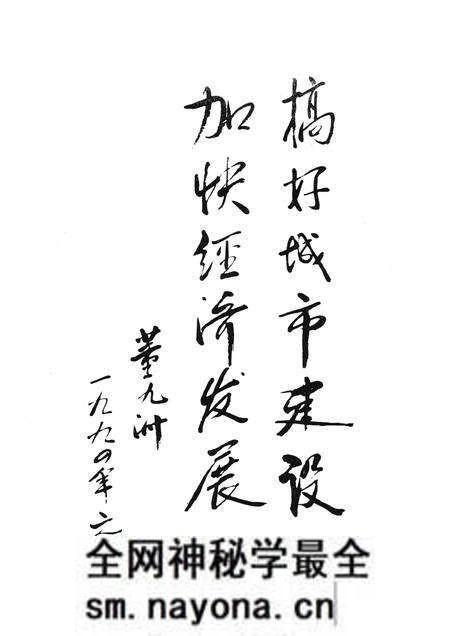 搞好城市建设
加快经济发展
董九洲
一九九四年元
全网神秘学最全
sm.nayona.cn